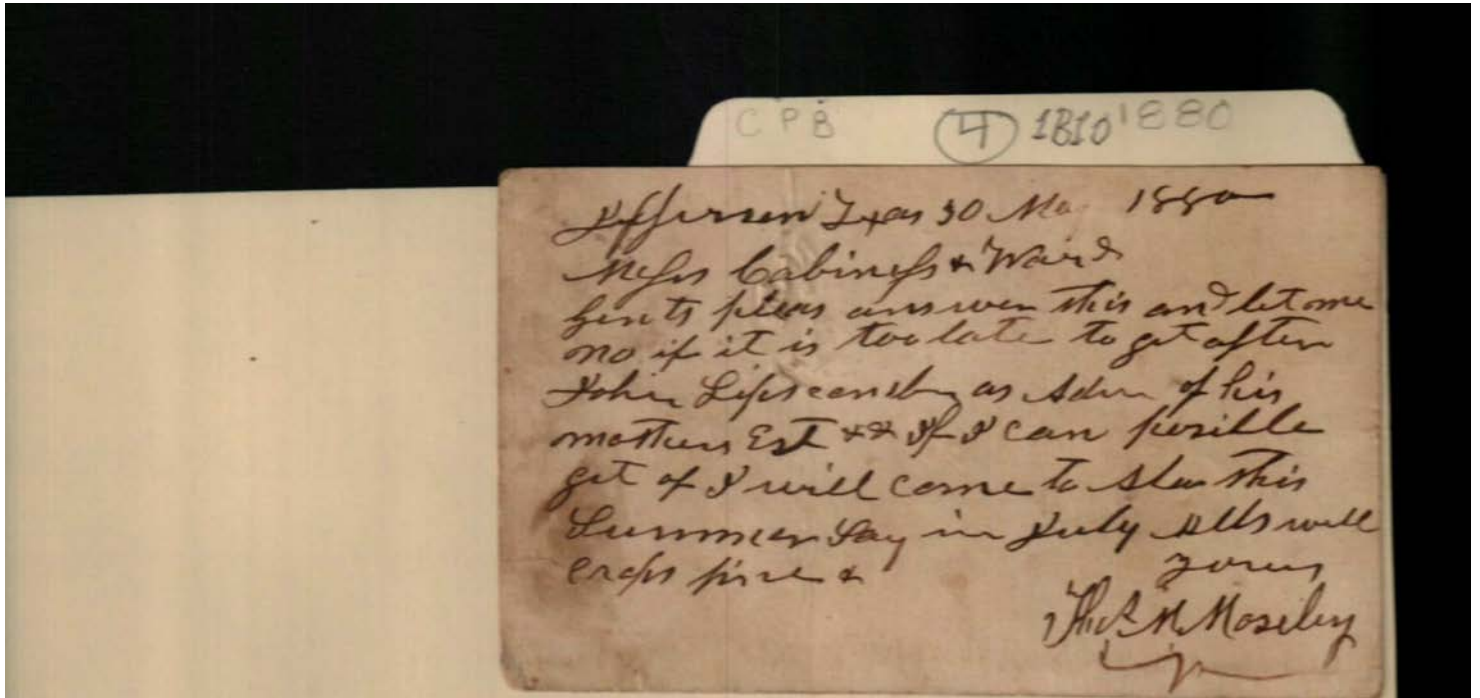 C P B 4 1810 1880
Jefferson Texas 30 May 1880
Messrs Cabiness & Ward
Gents pleas answer this and let me
no if it is too late to get after
John Lipscomb as Adm of his
mothers Est && If I can posible
get of I will come to this
Summer Say in July Alls well
crops fine &
yours
Thos M Moseley